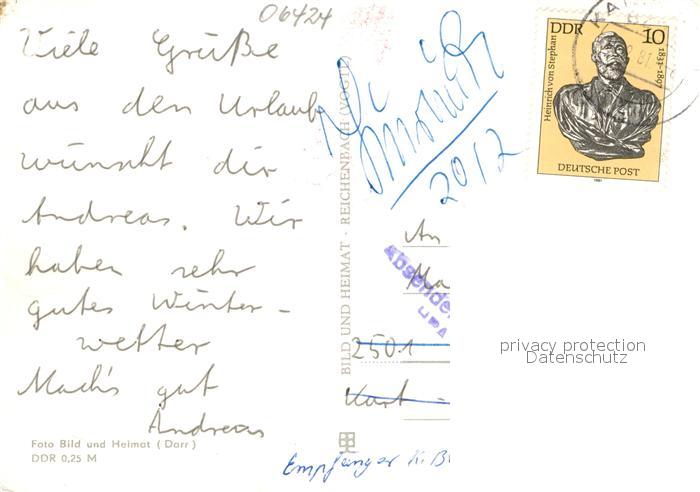 06424
Viele Grüße
aus den Urlaub
wünscht dir
Andreas. Wir
haben sehr
gutes Winter-
wetter
Mach's gut
Andreas
Foto Bild und Heimat (Darr)
DDR 0,25 M
BILD UND HEIMAT · REICHENBACH (VOGTL)
20/2
DDR 10
Heinrich von Stephan
1831-1897
DEUTSCHE POST
1981
An
Absende
2501
Empfänger
privacy protection
Datenschutz